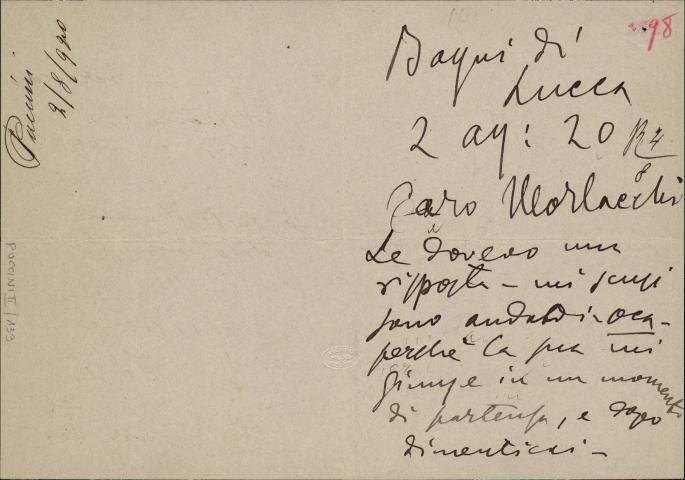 Puccini
2/8/920
PUCCINI II / 133
98
Bagni di
Lucca
2 ag: 20
R 4/8
Caro Morlacchi
Le dovevo una
risposta - mi scusi
sono andato in oca -
perchè la sua mi
giunse in un momento
di partenza, e dopo
dimenticai -